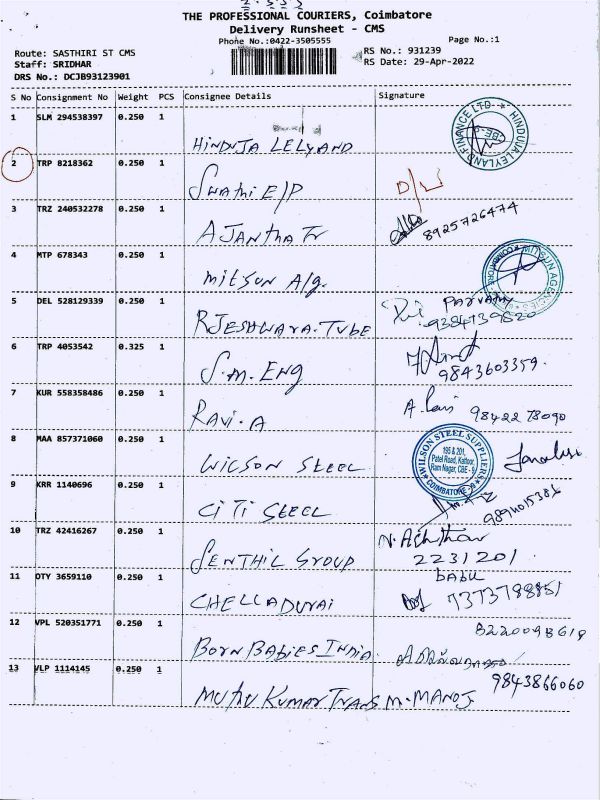 THE PROFESSIONAL COURIERS, Coimbatore
Delivery Runsheet - CMS
Phone No.:0422-3505555
Page No.:1
Route: SASTHIRI ST CMS
RS No.: 931239
Staff: SRIDHAR
RS Date: 29-Apr-2022
DRS No.: DCJB93123901
S No Consignment No Weight PCS Consignee Details Signature
1 SLM 294538397 0.250 1 HINDUJA LELYAND
HINDUJA LEYLAND FINANCE LTD CBE
2 TRP 8218362 0.250 1 Swathi E/P D/L
3 TRZ 240532278 0.250 1 AJANTHA Tr 8925726474
4 MTP 678343 0.250 1 MITSUN A/g.
MITSUN AGENCIES COIMBATORE
5 DEL 528129339 0.250 1 RJESHWARA.TUBE PARVATHY
6 TRP 4053542 0.325 1 S.M.ENG 9843603359.
7 KUR 558358486 0.250 1 RAVI.A A.Ravi 98422 78090
8 MAA 857371060 0.250 1 WILSON STEEL
WILSON STEEL SUPPLIERS
195 & 201,
Patel Road, Kattoor,
Ram Nagar, CBE - 9
COIMBATORE-9
9 KRR 1140696 0.250 1 CITI STEEL 9894015386
10 TRZ 42416267 0.250 1 SENTHIL GROUP
2231201
11 OTY 3659110 0.250 1 CHELLADURAI BABU
7373798851
12 VPL 520351771 0.250 1 BORN BABIES INDIA.
13 VLP 1114145 0.250 1 MUTHU KUMAR TRANS M.MANOJ
9843866060